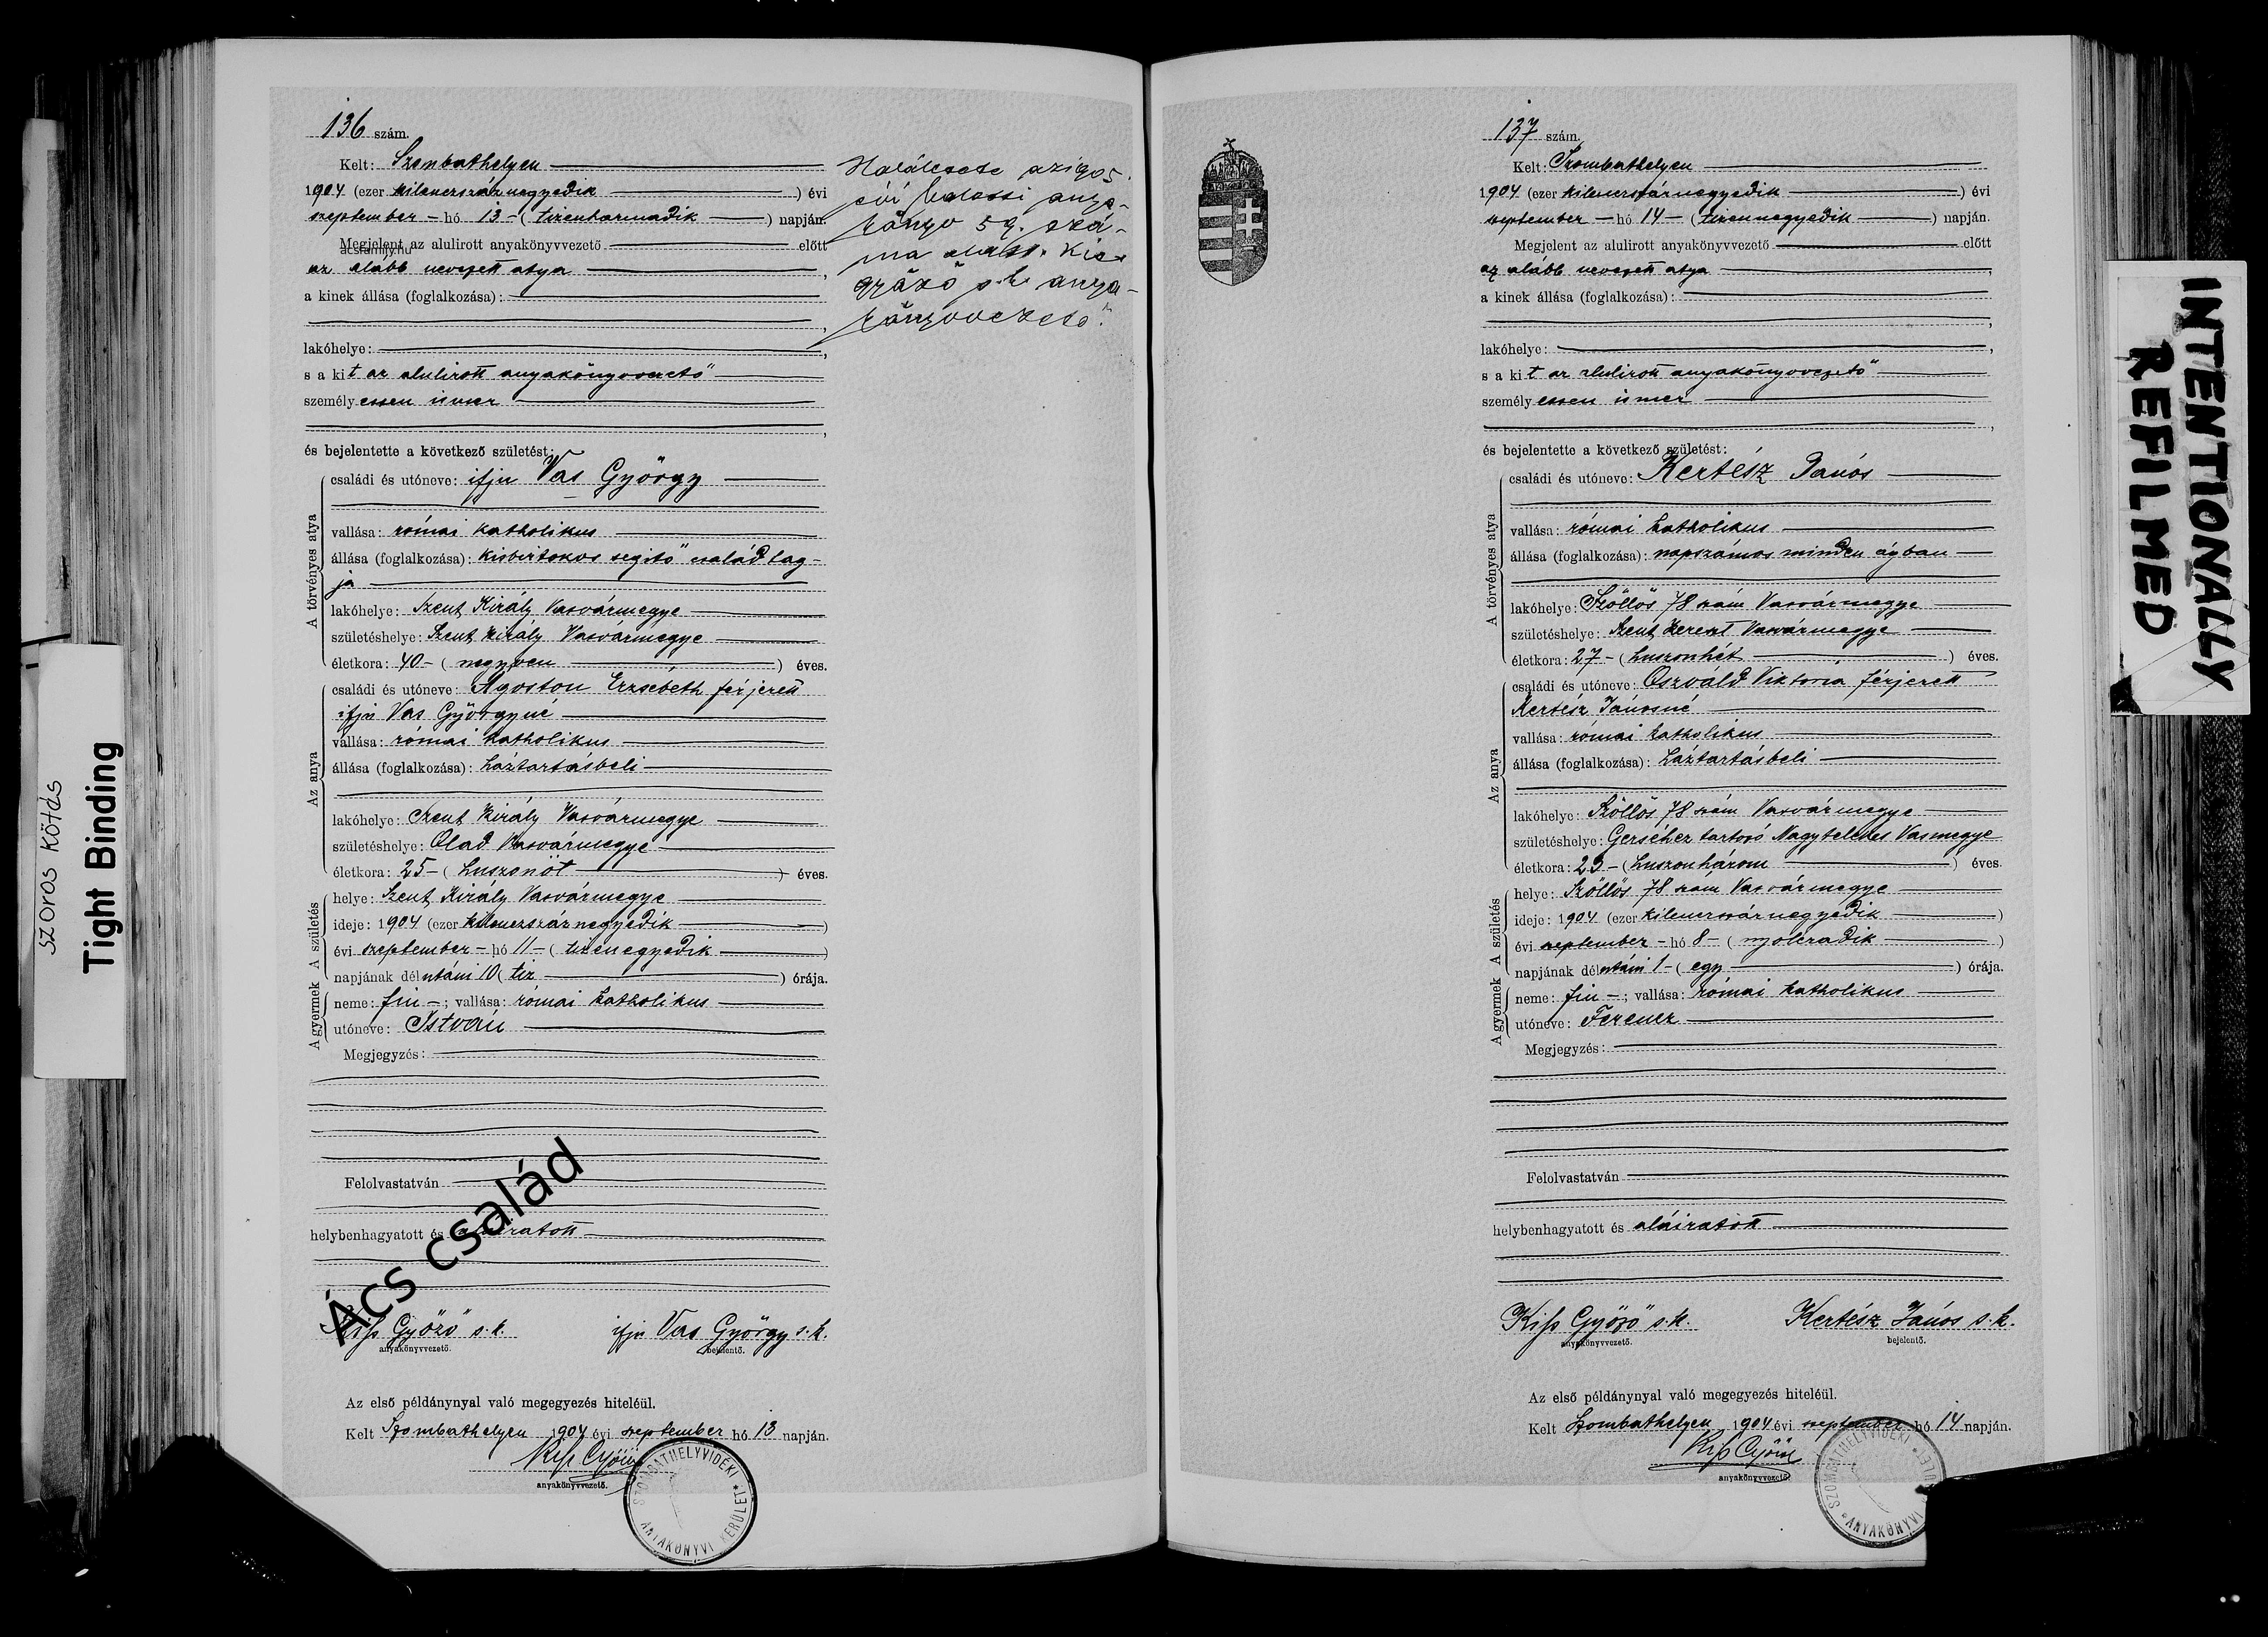 136 szám.
Kelt: Szombathelyen
1904 (ezer kilenczszáznegyedik) évi
szeptember hó 13 (tizenharmadik) napján.
Megjelent az alulirott anyakönyvvezető előtt
acsfamily.hu
az alább nevezett atya,
a kinek állása (foglalkozása):
lakóhelye:
s a kit az alulirott anyakönyvvezető
személyesen ismer
és bejelentette a következő születést:
A törvényes atya
családi és utóneve: ifju Vas György
vallása: római katholikus
állása (foglalkozása): kisbirtokos segitő családtag-
ja
lakóhelye: Szent Király Vasvármegye
születéshelye: Szent Király Vasvármegye
életkora: 40 - (negyven) éves.
Az anya
családi és utóneve: Ágoston Erzsébeth férjezett
ifju Vas Györgyné
vallása: római katholikus
állása (foglalkozása): háztartásbeli
lakóhelye: Szent Király Vasvármegye
születéshelye: Olad Vasvármegye
életkora: 25 - (huszonöt) éves.
A születés
helye: Szent Király Vasvármegye
ideje: 1904 (ezer kilenczszáznegyedik)
évi szeptember - hó 11 - (tizenegyedik)
napjának délutáni 10 (tiz) órája.
A gyermek
neme: fiu -; vallása: római katholikus
utóneve: István
Megjegyzés:
Felolvastatván
helybenhagyatott és aláiratott
Ács család
Kiss Győző s. k. ifju Vas György s. k.
anyakönyvvezető. bejelentő.
Az első példánynyal való megegyezés hiteléül.
Kelt Szombathelyen 1904 évi szeptember hó 13 napján.
Kiss Győző
anyakönyvvezető.
SZOMBATHELYVIDÉKI ANYAKÖNYVI KERÜLET
Halálesete az 1905.
évi
anya-
könyv 59. szá-
ma alatt. Kiss
Győző s. k. anya-
könyvvezető.
137 szám.
Kelt: Szombathelyen
1904 (ezer kilenczszáznegyedik) évi
szeptember - hó 14 - (tizennegyedik) napján.
Megjelent az alulirott anyakönyvvezető előtt
az alább nevezett atya,
a kinek állása (foglalkozása):
lakóhelye:
s a kit az alulirott anyakönyvvezető
személyesen ismer
és bejelentette a következő születést:
A törvényes atya
családi és utóneve: Kertész János
vallása: római katholikus
állása (foglalkozása): napszámos minden ágban
lakóhelye: Szőllős 78 szám Vasvármegye
születéshelye: Szent Kereszt Vasvármegye
életkora: 27 - (huszonhét) éves.
Az anya
családi és utóneve: Oszváld Viktoria férjezett
Kertész Jánosné
vallása: római katholikus
állása (foglalkozása): háztartásbeli
lakóhelye: Szőllős 78 szám Vasvármegye
születéshelye: Gerséhez tartozó Nagytelekes Vasmegye
életkora: 23 - (huszonhárom) éves.
A születés
helye: Szőllős 78 szám Vasvármegye
ideje: 1904 (ezer kilenczszáznegyedik)
évi szeptember - hó 8 - (nyolczadik)
napjának délutáni 1 - (egy) órája.
A gyermek
neme: fiu -; vallása: római katholikus
utóneve: Ferencz
Megjegyzés:
Felolvastatván
helybenhagyatott és aláiratott
Kiss Győző s. k. Kertész János s. k.
anyakönyvvezető. bejelentő.
Az első példánynyal való megegyezés hiteléül.
Kelt Szombathelyen 1904 évi szeptember hó 14 napján.
Kiss Győző
anyakönyvvezető.
SZOMBATHELYVIDÉKI ANYAKÖNYVI
szoros kötés
Tight Binding
INTENTIONALLY
REFILMED